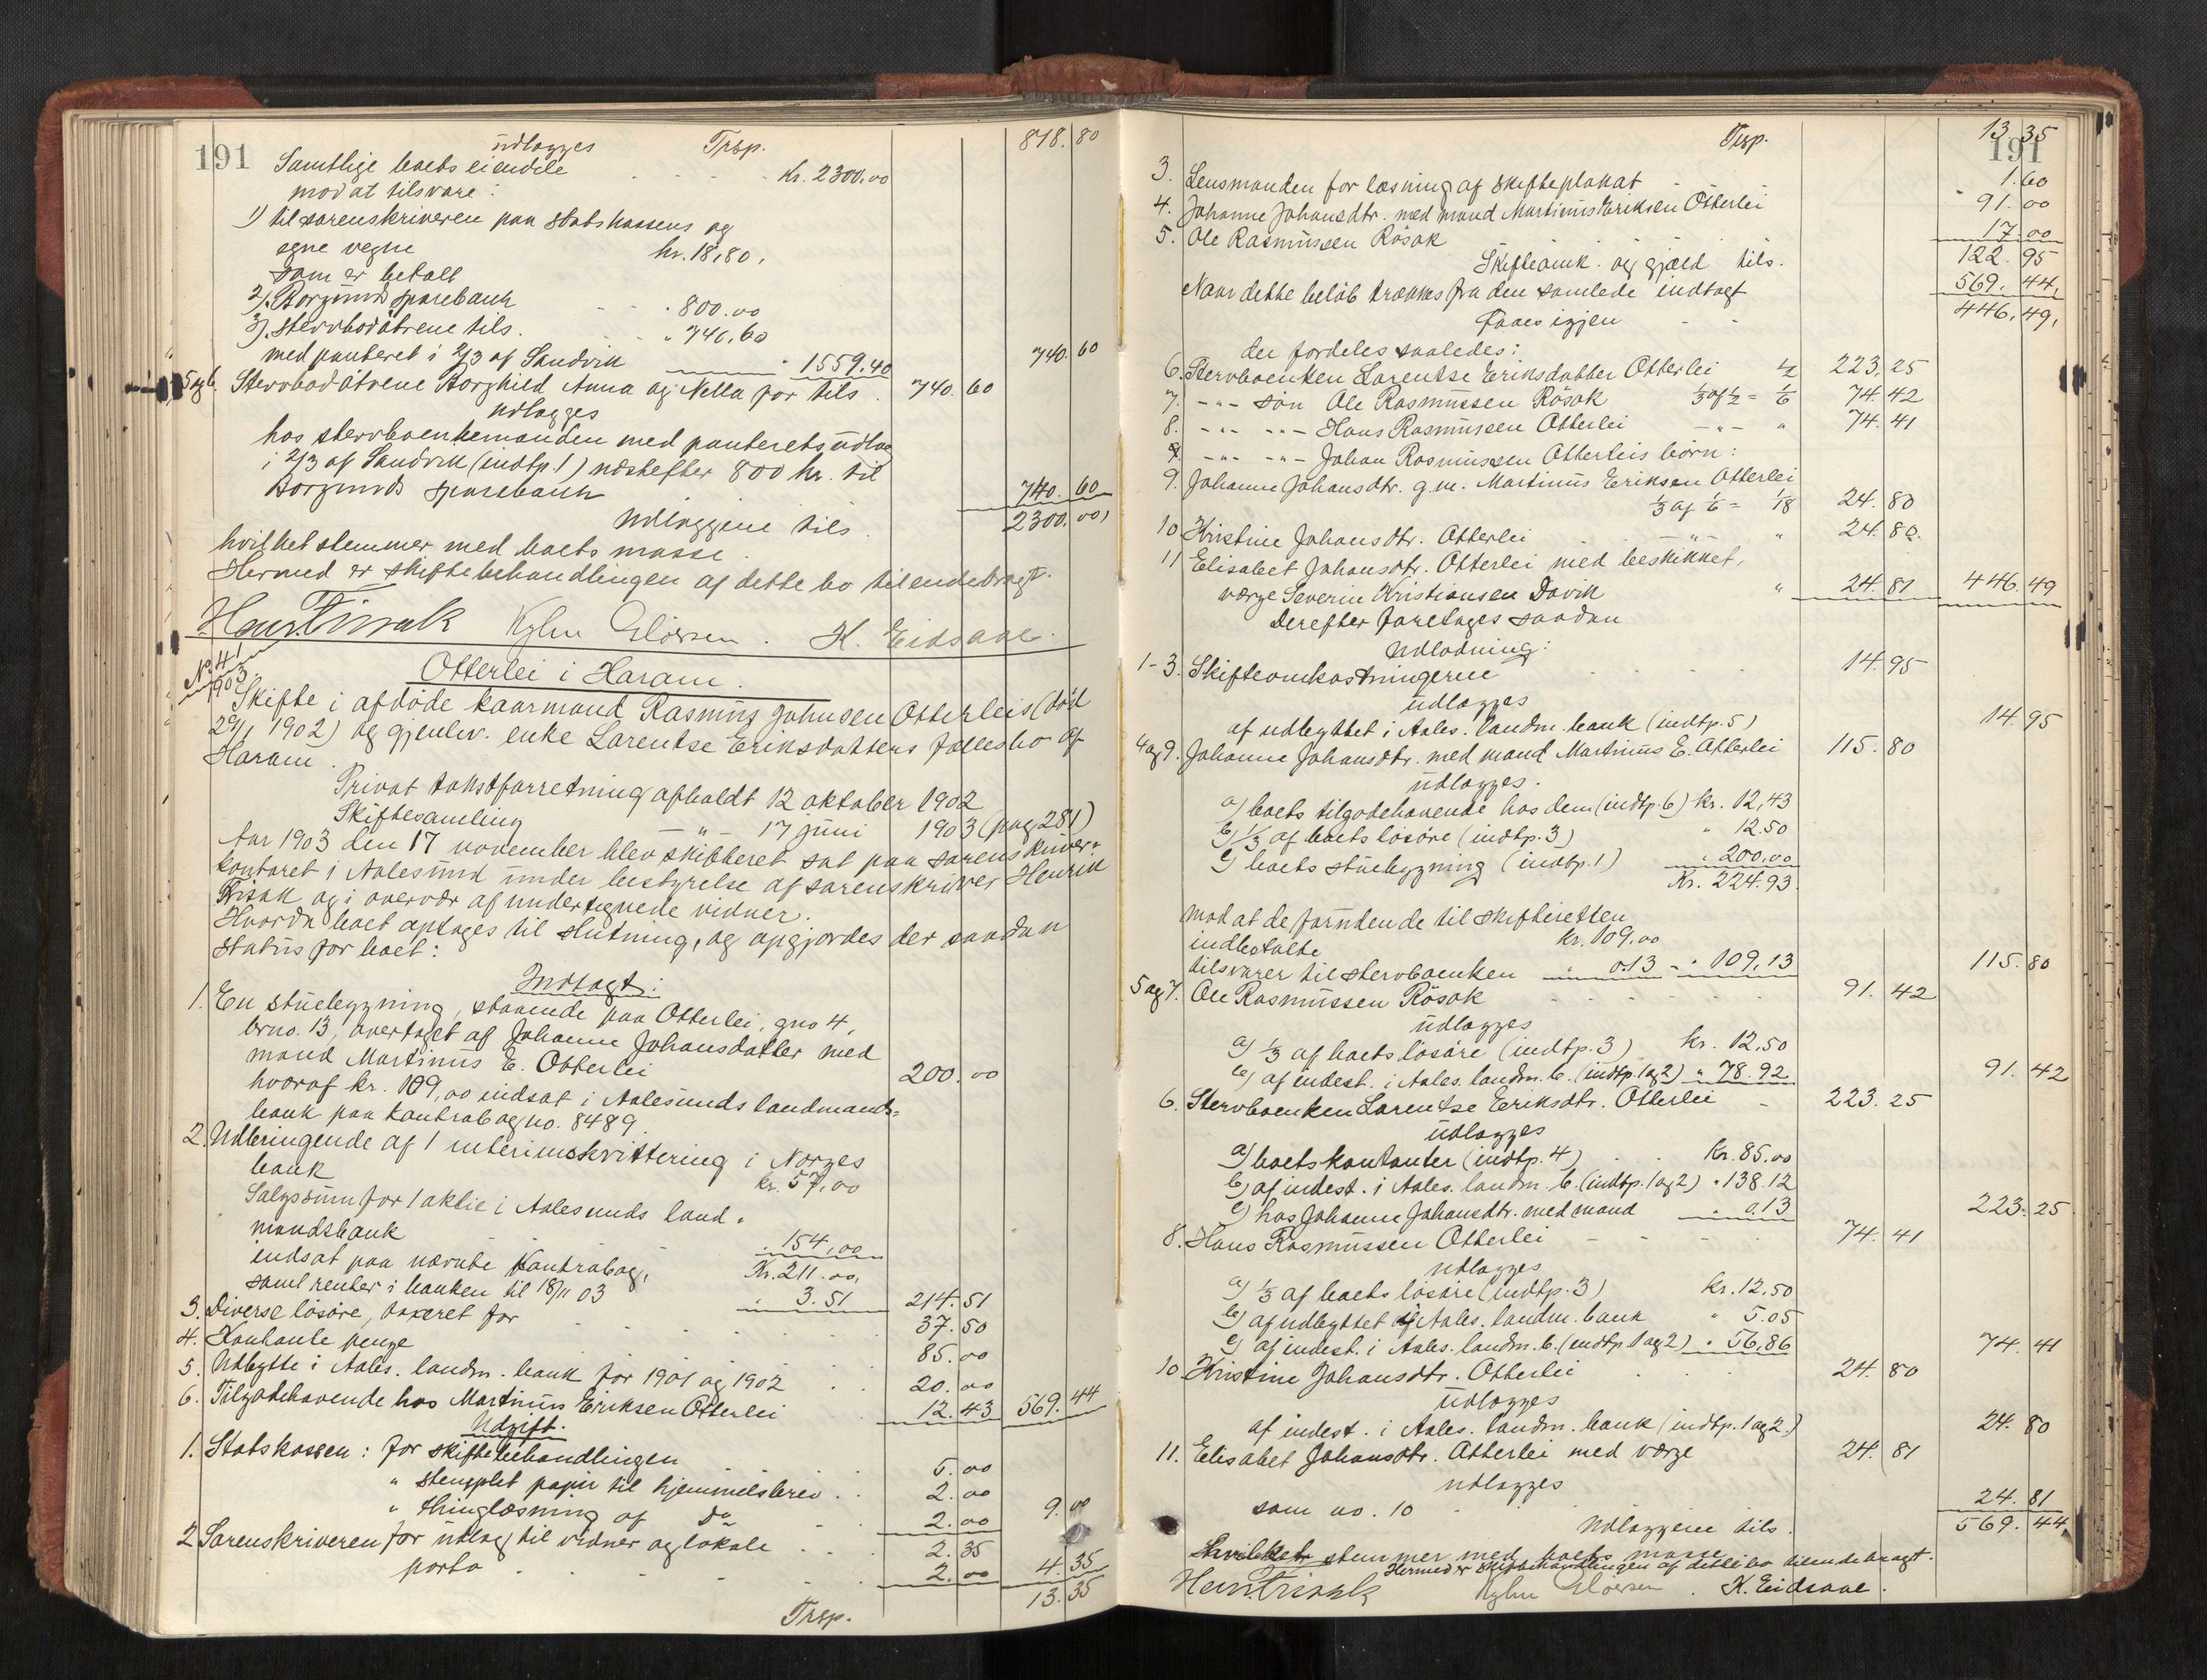 191
Trsp. 818.80
udlægges
Samtlige boets eiendele Kr. 2300,00
mod at tilsvare:
1) til sorenskriveren paa statskassens og
egne vegne kr. 18,80,
som er betalt
2). Borgunds sparebank " 800.00
3). stervbodøtrene tils. " 740,60
med panteret i 2/3 af Sandvik " 1559.40 740.60
5 og 6. Stervbodøtrene Borghild Anna og Nella for tils. 740.60
udlægges
hos stervboenkemanden med panterets udlæg
i 2/3 af Sandvik (indtp. 1) næstefter 800 kr. til
Borgunds sparebank 740.60
Udlæggene tils. 2300.00,
hvilket stemmer med boets masse.
Hermed er skiftebehandlingen af dette bo tilendebragt.
Henr. Finsak K. Eidsaae.
No. 41
1903
Otterlei i Haram.
Skifte i afdøde kaarmand Rasmus Johnsen Otterleis (død
29/1 1902) og gjenlev. enke Larentse Eriksdatters fællesbo af
Haram.
Privat takstforretning afholdt 12 oktober 1902
Skiftesamling " 17 juni 1903 (pag. 281)
Aar 1903 den 17 november blev skifteret sat paa sorenskriver-
kontoret i Aalesund under bestyrelse af sorenskriver Henrik
Finsak og i overvær af undertegnede vidner.
Hvorda boet optages til slutning, og opgjordes der saadan
status for boet:
Indtægt:
1. En stuebygning, staaende paa Otterlei, gno 4,
brno. 13, overtaget af Johanne Johansdatter med
mand Martinus E. Otterlei 200.00
hvoraf kr. 109,00 indsat i Aalesunds landmands-
bank paa kontrabog no. 8489.
2. Udbringende af 1 interimskvittering i Norges
bank kr. 57,00
Salgssum for 1 aktie i Aalesunds land-
mandsbank " 154,00
indsat paa nævnte kontrabog, Kr. 211.00,
samt renter i banken til 18/11 03 " 3.51 214.51
3. Diverse løsøre, taxeret for 37.50
4. Kontante penge 85.00
5. Udbytte i Aales. landm. bank for 1901 og 1902 20.00
6. Tilgodehavende hos Martinus Eriksen Otterlei 12.43 569.44
Udgift.
1. Statskassen: for skiftebehandlingen 5.00
" stemplet papir til hjemmelsbrev 2.00
" thinglæsning af Do 2.00 9.00
2. Sorenskriveren for udlæg til vidner og lokale 2.35
porto 2.00 4.35
Trsp. 13.35
Trsp. 13.35
191
3. Lensmanden for læsning af skifteplakat 1.60
4. Johanne Johansdtr. med mand Martinus Eriksen Otterlei 91.00
5. Ole Rasmussen Røsok 17.00
Skifteomk. og gjæld tils. 122.95
Naar dette beløb trækkes fra den samlede indtægt 569.44,
faaes igjen 446.49,
der fordeles saaledes:
6. Stervboenken Larentse Eriksdatter Otterlei 1/2 223.25
7. -"- søn Ole Rasmussen Røsok 1/3 af 1/2 = 1/6 74.42
8. -"- -"- Hans Rasmussen Otterlei -"- " 74.41
-"- -"- Johan Rasmussen Otterleis børn:
9. Johanne Johansdtr. g. m. Martinus Eriksen Otterlei
1/3 af 1/6 = 1/18 24.80
10 Kristine Johansdtr. Otterlei " " 24.80.
11 Elisabet Johansdtr. Otterlei med beskikket,
værge Severin Kristiansen Davik " 24.81 446.49
Derefter foretages saadan
Udlodning:
1-3. Skifteomkostningerne 14.95
udlægges
af udbyttet i Aales. landm. bank (indtp. 5) 14.95
4 og 9. Johanne Johansdtr. med mand Martinus E. Otterlei 115.80
udlægges.
a) boets tilgodehavende hos dem (indtp. 6) kr. 12,43
b) 1/3 af boets løsøre (indtp. 3) " 12.50
c) boets stuebygning (indtp. 1) " 200,00
Kr. 224.93.
mod at de forudende til skifteretten
indbetalte kr. 109.00
tilsvarer til stervboenken " 0.13 - " 109,13 115.80
5 og 7. Ole Rasmussen Røsok 91.42
udlægges
a) 1/3 af boets løsøre (indtp. 3) kr. 12,50
b) af indest. i Aales. landm. b. (indtp. 1 og 2) " 78.92 91.42
6. Stervboenken Larentse Eriksdtr. Otterlei 223.25
udlægges
a) boets kontanter (indtp. 4) Kr. 85.00
b) af indest. i Aales. landm. b. (indtp. 1 og 2) " 138.12
c) hos Johanne Johansdtr. med mand " 0.13 223.25
8. Hans Rasmussen Otterlei 74.41
udlægges
a) 1/3 af boets løsøre (indtp. 3) kr. 12,50
b) af udbyttet i Aales. landm. bank " 5.05
c) af indest. i Aales. landm. b. (indtp. 1 og 2) " 56,86 74.41
10. Kristine Johansdtr. Otterlei 24.80
udlægges
af indest. i Aales. landm. bank (indtp. 1 og 2.) 24.80
11. Elisabet Johansdtr. Otterlei med værge 24.81
udlægges
som no. 10 24.81
Udlæggene tils. 569.44
Hvilket stemmer med boets masse.
Hermed er skiftebehandlingen af dette bo tilendebragt.
Henr. Finsak K. Eidsaae.